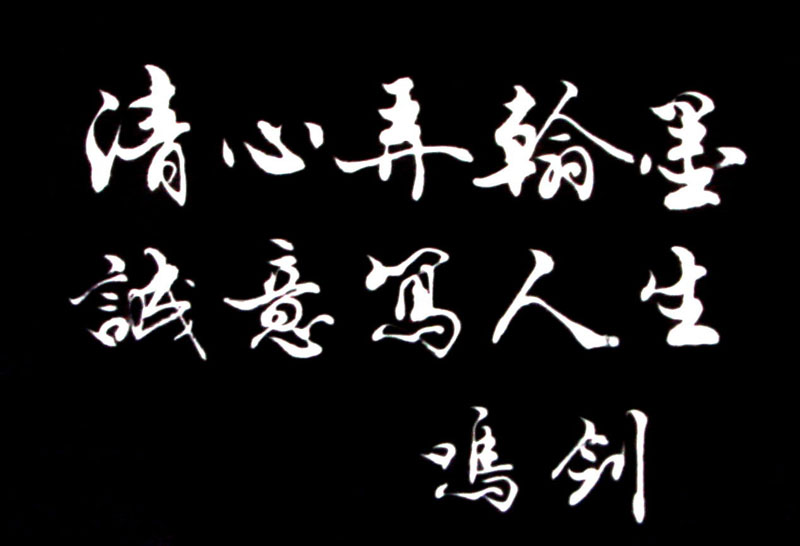 清心弄翰墨
誠意寫人生
鸣剑